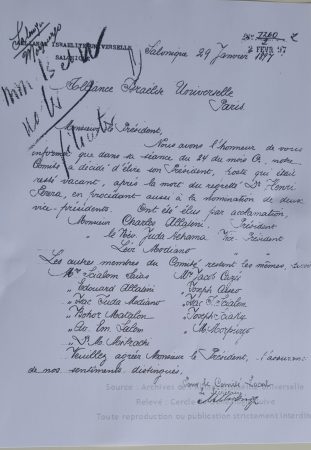 ALLIANCE ISRAÉLITE UNIVERSELLE
SALONIQUE
Nº 7260
2 FEVR 97
Salonique 29 Janvier 1897
Alliance Israélite Universelle
Paris
Monsieur le Président,
Nous avons l'honneur de vous
informer que dans sa séance du 24 du mois Ct, notre
Comité a décidé d'élire son Président, poste que était
resté vacant, après la mort du regretté Dr Henri
Perera, en procédant aussi à la nomination de deux
vice-présidents. Ont été élus par acclamation,
Monsieur Charles Allatini, Président
" Juda Nehama Vice Président
" Lévi Modiano "
Les autres membres du Comité restent les mêmes,
Mrs Scialom Saias Mrs Jacob Cazés
" Edouard Allatini " Joseph
" Isac Juda Modiano " Isac S. Scialom
" Bohor Matalon " Joseph
" Salem " M. Morpurgo
" Mizrachi
Veuillez agréer Monsieur le Président, l'assurance
de nos sentiments distingués.
Pour le Comité Local
Source : Archives de l'Alliance Israélite Universelle
Relevé : Cercle
Toute reproduction ou publication strictement interdite